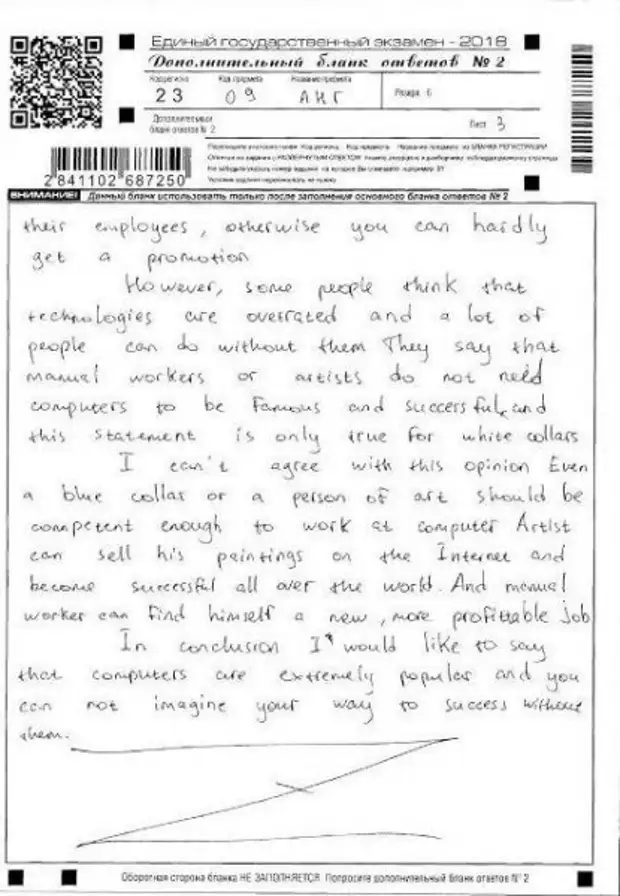 Единый государственный экзамен - 2018
Дополнительный бланк ответов № 2
Код региона Код предмета Название предмета
23 09 АНГ
Резерв - 6
Дополнительный бланк ответов № 2
Лист 3
2841102 687250
ВНИМАНИЕ! Данный бланк использовать только после заполнения основного бланка ответов № 2
their employees, otherwise you can hardly
get a promotion
However, some people think that
technologies are overrated and a lot of
people can do without them They say that
manual workers or artists do not need
computers to be famous and successful, and
this statement is only true for white collars
I can't agree with this opinion Even
a blue collar or a person of art should be
competent enough to work at computer Artist
can sell his paintings on the Internet and
become successful all over the world. And manual
worker can find himself a new, more profittable job
In conclusion I would like to say
that computers are extremely popular and you
can not imagine your way to success without
them.
Оборотная сторона бланка НЕ ЗАПОЛНЯЕТСЯ. Попросите дополнительный бланк ответов № 2